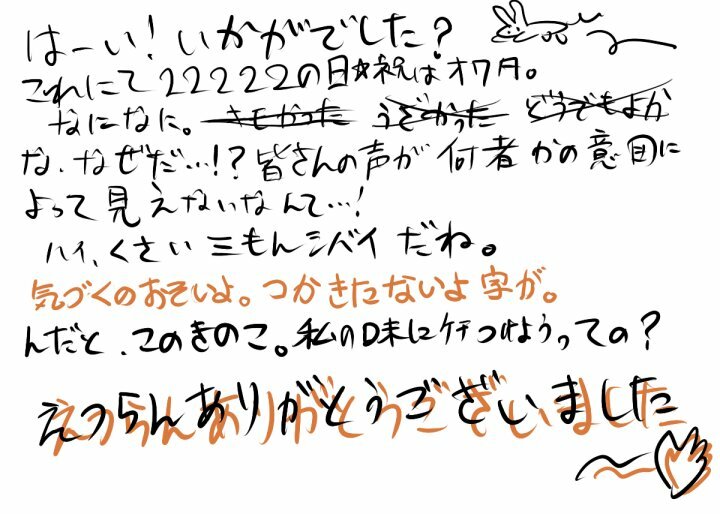 はーい！いかがでした？
これにて22222の日☆祝はオワタ。
なになに。きもかった うざかった どうでもよか
な、なぜだ…！？皆さんの声が何者かの意図に
よって見えないなんて…！
ハイ、くさい三もんシバイだね。
気づくのおそいよ。つかきたないよ字が。
んだと、このきのこ。私の味にケチつけようっての？
えつらんありがとうございました